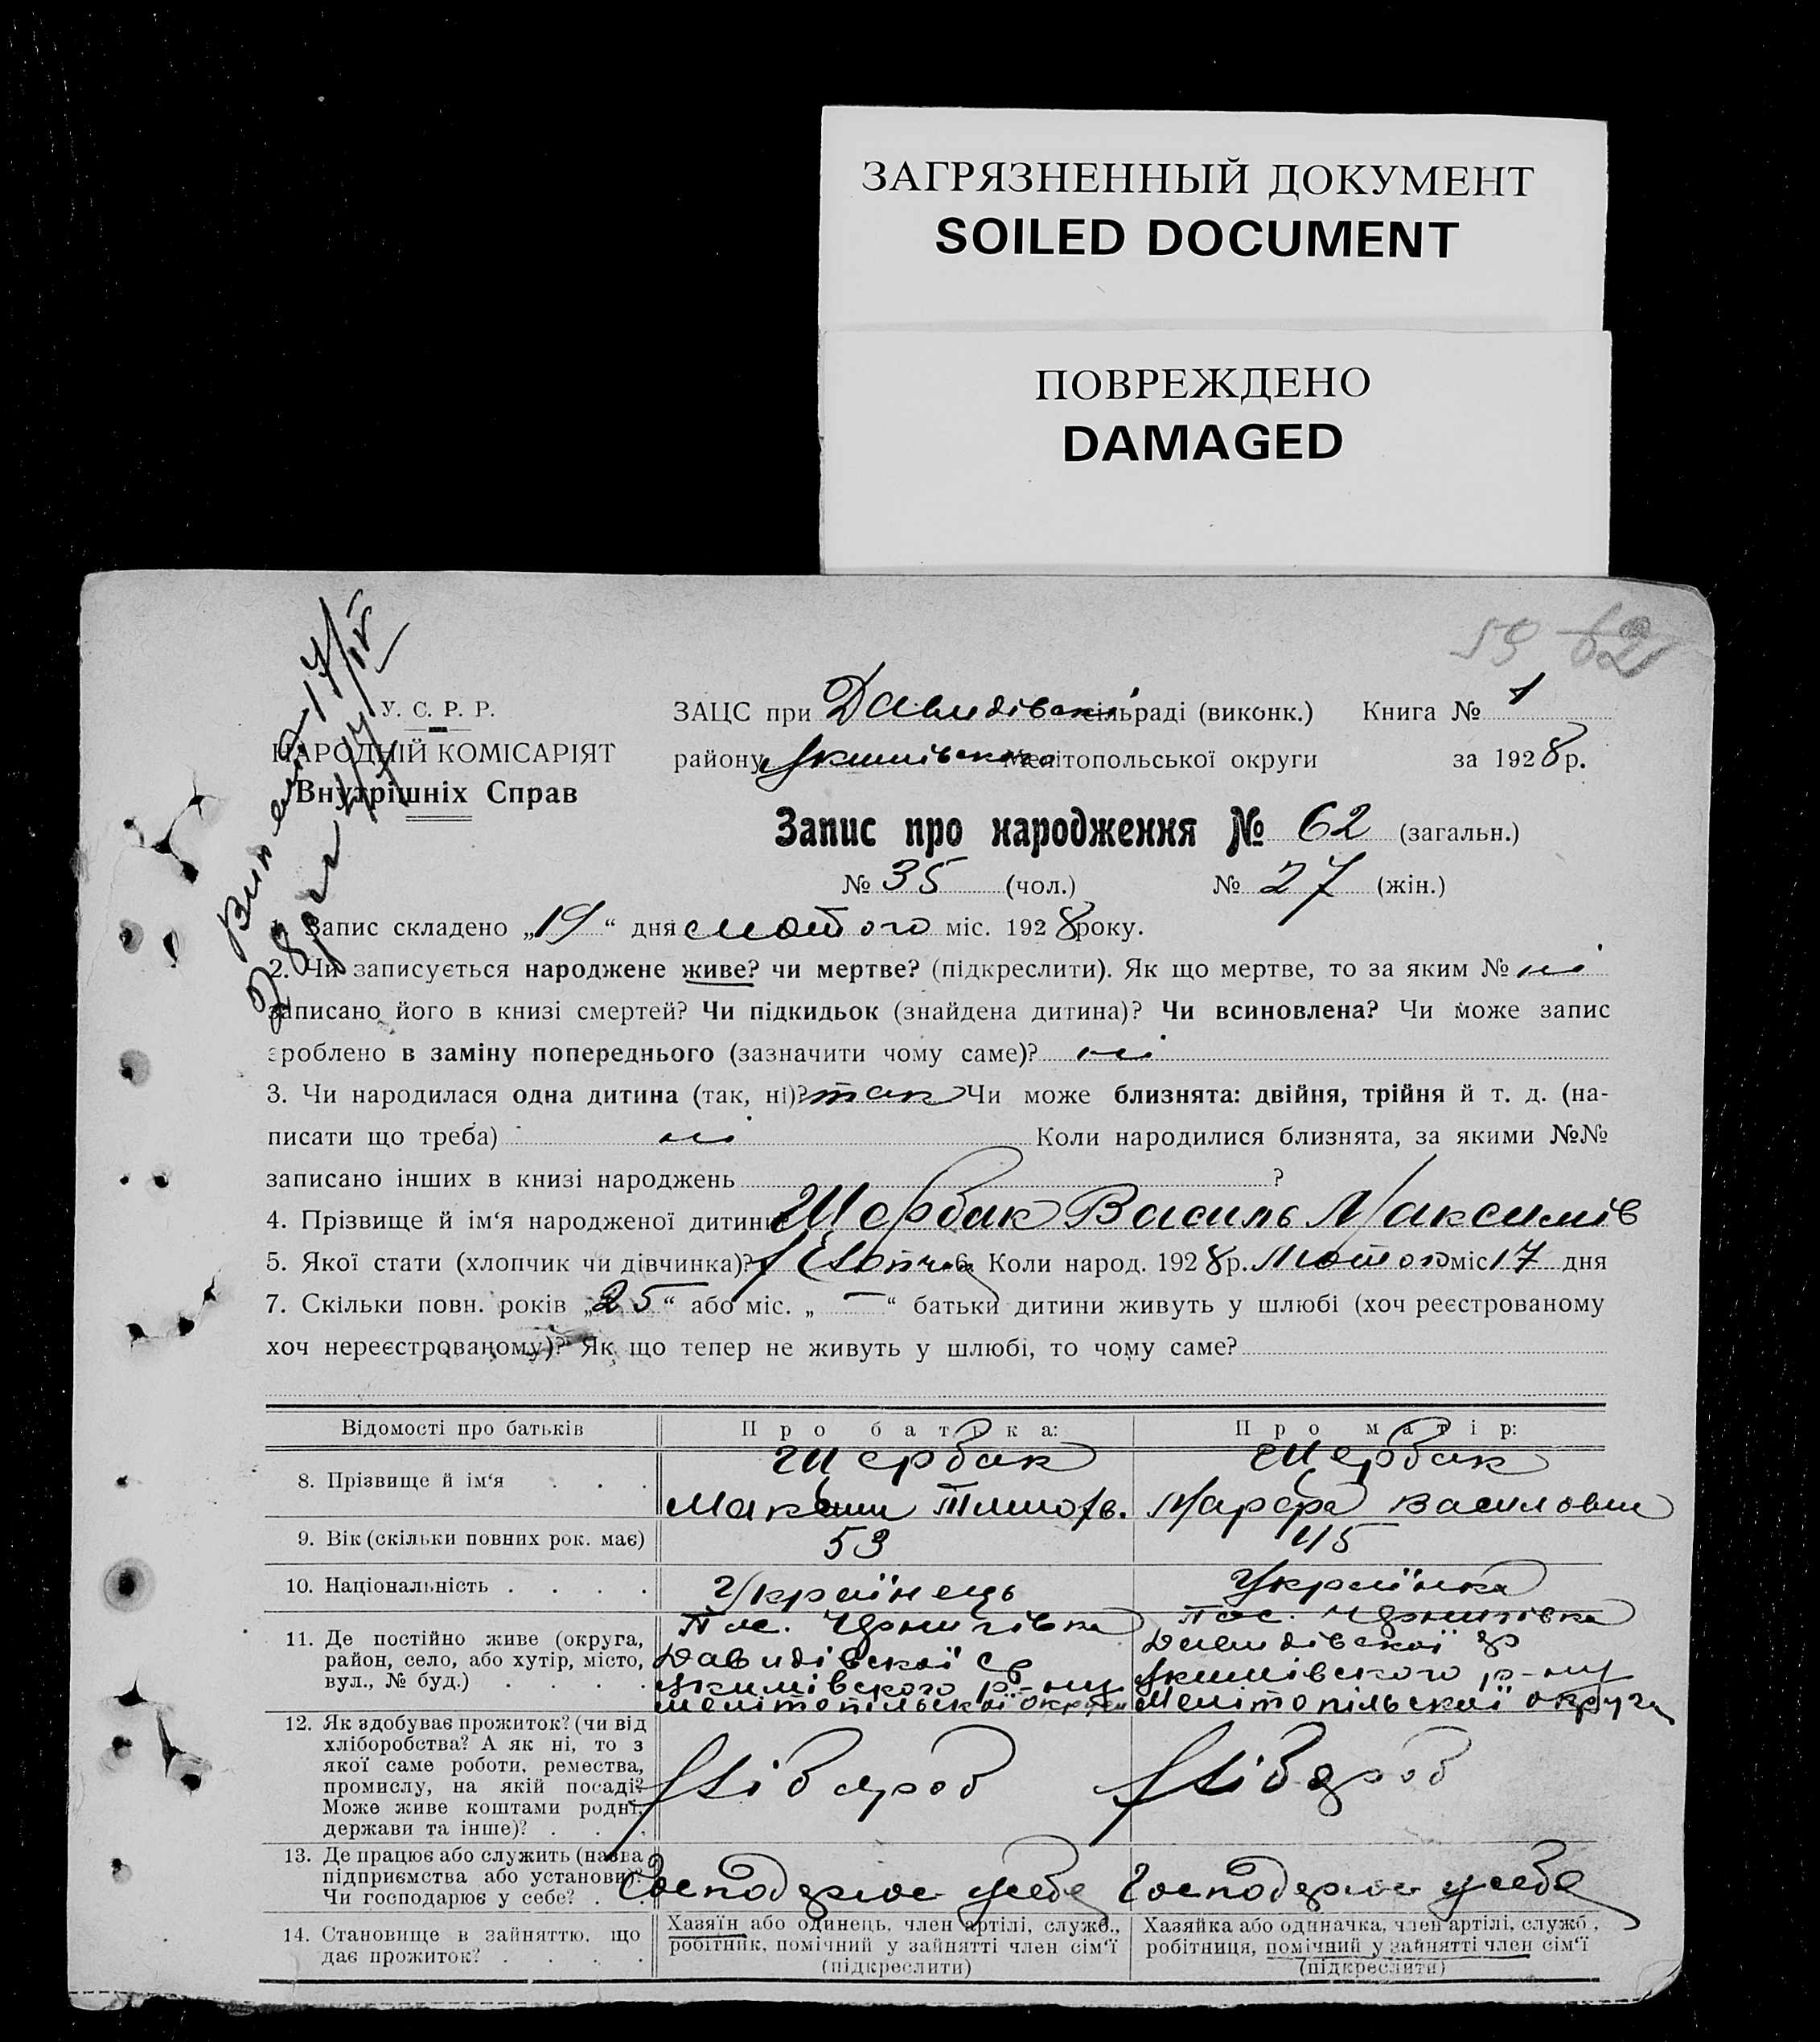 ЗАГРЯЗНЕННЫЙ ДОКУМЕНТ
SOILED DOCUMENT
ПОВРЕЖДЕНО
DAMAGED
59 62
У. С. Р. Р.
НАРОДНІЙ КОМІСАРІЯТ
Внутрішніх Справ
ЗАЦС при Давидівскі сільраді (виконк.) Книга № 1
району Якимівского Мелітопольської округи за 1928 р.
Запис про народження № 62 (загальн.)
№ 35 (чол.) № 27 (жін.)
1. Запис складено „19“ дня лютого міс. 1928 року.
2. Чи записується народжене живе? чи мертве? (підкреслити). Як що мертве, то за яким № ні
записано його в книзі смертей? Чи підкидьок (знайдена дитина)? Чи всиновлена? Чи може запис
зроблено в заміну попереднього (зазначити чому саме)? ні
3. Чи народилася одна дитина (так, ні)? так Чи може близнята: двійня, трійня й т. д. (на-
писати що треба) ні Коли народилися близнята, за якими №№
записано інших в книзі народжень ?
4. Прізвище й ім‘я народженої дитини Щербак Василь Максимів
5. Якої стати (хлопчик чи дівчинка)? Хлопчик 6. Коли народ. 1928 р. Лютого міс 17 дня
7. Скільки повн. років „25“ або міс. „ — “ батьки дитини живуть у шлюбі (хоч реєстрованому
хоч нереєстрованому)? Як що тепер не живуть у шлюбі, то чому саме?
Відомості про батьків Про батька: Про матір:
8. Прізвище й ім‘я . . . Щербак Щербак
Максим Тимофв. Марфа Василовна
9. Вік (скільки повних рок. має) 53 45
10. Національність . . . . Українець Українка
11. Де постійно живе (округа, Пос. Чернигівка Пос. Чернигівка
район, село, або хутір, місто, Давидівскої ср Давидівскої ср
вул., № буд.) . . . . Якимівского р-ну Якимівского р-ну
Мелітопільскої округи Мелітопільскої округи
12. Як здобуває прожиток? (чи від
хліборобства? А як ні, то з
якої саме роботи, ремества,
промислу, на якій посаді? Хлібороб Хлібороб
Може живе коштами родні,
держави та інше)? . . .
13. Де працює або служить (назва
підприємства або установи)?
Чи господарює у себе? . . Господарює усебе Господарює усебе
14. Становище в зайняттю, що
дає прожиток? . . . .
Хазяїн або одинець, член артілі, служб.,
робітник, помічний у зайнятті член сім‘ї
(підкреслити)
Хазяйка або одиначка, член артілі, служб.,
робітниця, помічний у зайнятті член сім‘ї
(підкреслити)